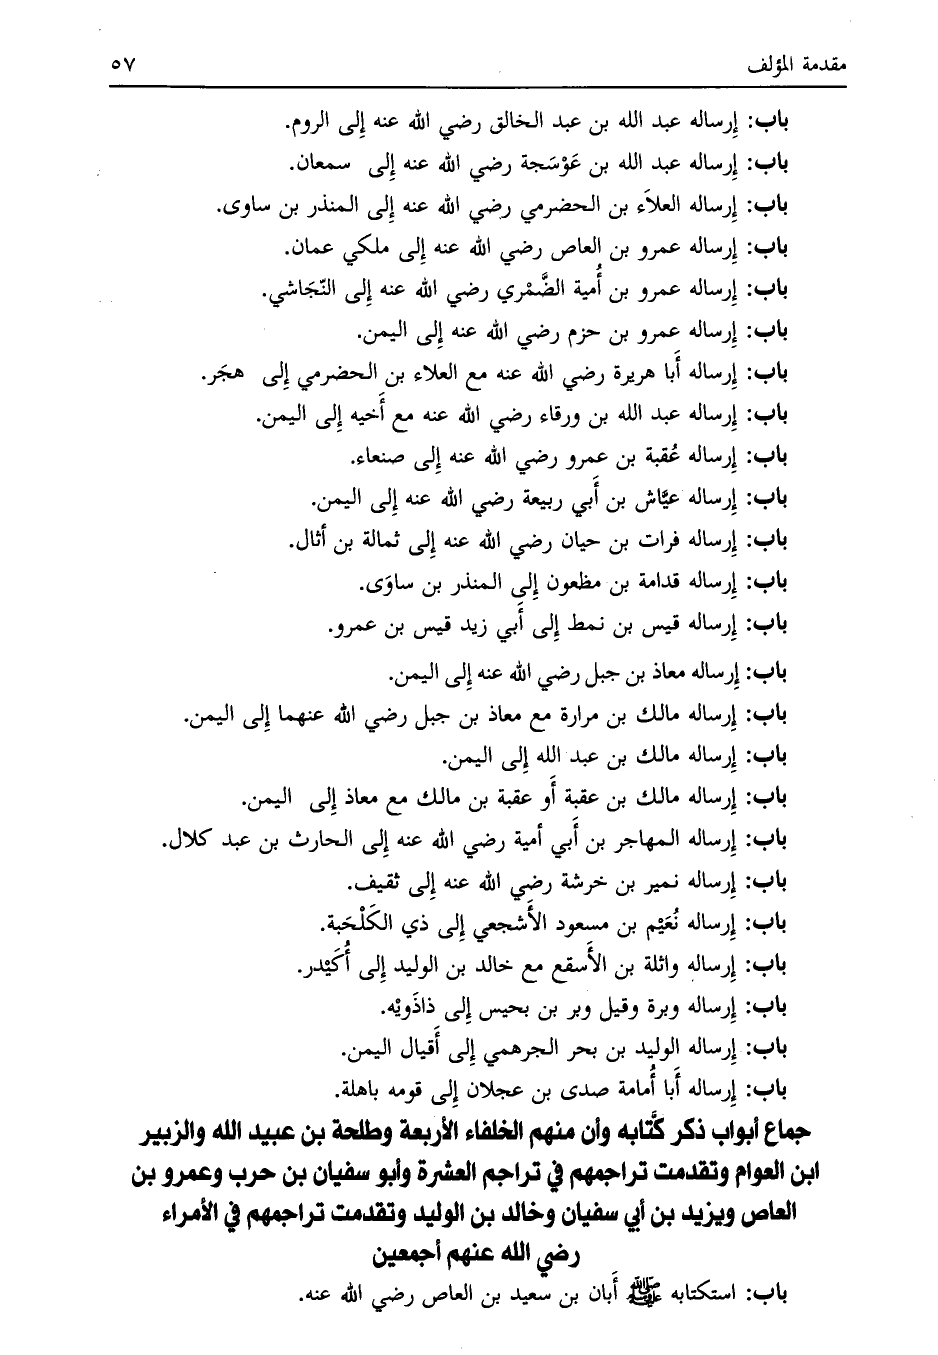 مقدمة المؤلف ٥٧
باب: إرساله عبد الله بن عبد الخالق رضي الله عنه إلى الروم.
باب: إرساله عبد الله بن عَوْسَجة رضي الله عنه إلى سمعان.
باب: إرساله العلاَء بن الحضرمي رضي الله عنه إلى المنذر بن ساوى.
باب: إرساله عمرو بن العاص رضي الله عنه إلى ملكي عمان.
باب: إرساله عمرو بن أُمية الضَّمْري رضي الله عنه إلى النّجَاشي.
باب: إرساله عمرو بن حزم رضي الله عنه إلى اليمن.
باب: إرساله أَبا هريرة رضي الله عنه مع العلاء بن الحضرمي إلى هجَر.
باب: إرساله عبد الله بن ورقاء رضي الله عنه مع أَخيه إلى اليمن.
باب: إرساله عُقبة بن عمرو رضي الله عنه إلى صنعاء.
باب: إرساله عيَّاش بن أَبي ربيعة رضي الله عنه إلى اليمن.
باب: إرساله فرات بن حيان رضي الله عنه إلى ثمالة بن أثال.
باب: إرساله قدامة بن مظعون إلى المنذر بن ساوَى.
باب: إرساله قيس بن نمط إلى أَبي زيد قيس بن عمرو.
باب: إرساله معاذ بن جبل رضي الله عنه إلى اليمن.
باب: إرساله مالك بن مرارة مع معاذ بن جبل رضي الله عنهما إلى اليمن.
باب: إرساله مالك بن عبد الله إلى اليمن.
باب: إرساله مالك بن عقبة أَو عقبة بن مالك مع معاذ إلى اليمن.
باب: إرساله المهاجر بن أَبي أمية رضي الله عنه إلى الحارث بن عبد كلال.
باب: إرساله نمير بن خرشة رضي الله عنه إلى ثقيف.
باب: إرساله نُعَيْم بن مسعود الأَشجعي إلى ذي الكَلْحَبة.
باب: إرساله واثلة بن الأَسقع مع خالد بن الوليد إلى أُكَيْدر.
باب: إرساله وبرة وقيل وبر بن بحيس إلى ذاذَويْه.
باب: إرساله الوليد بن بحر الجرهمي إلى أَقيال اليمن.
باب: إرساله أَبا أُمامة صدى بن عجلان إلى قومه باهلة.
جماع أبواب ذكر كتَّابه وأن منهم الخلفاء الأربعة وطلحة بن عبيد الله والزبير
ابن العوام وتقدمت تراجمهم في تراجم العشرة وأبو سفيان بن حرب وعمرو بن
العاص ويزيد بن أبي سفيان وخالد بن الوليد وتقدمت تراجمهم في الأمراء
رضي الله عنهم أجمعين
باب: استكتابه ﷺ أَبان بن سعيد بن العاص رضي الله عنه.